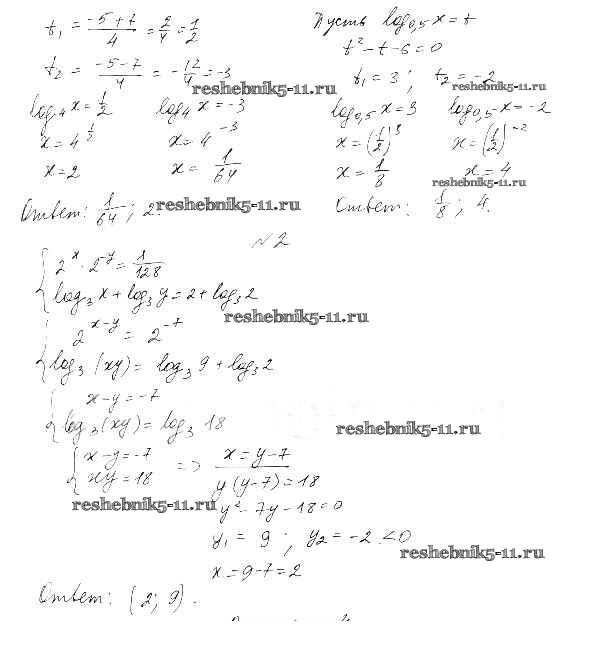 t₁ = (-5+7)/4 = 2/4 = 1/2
t₂ = (-5-7)/4 = -12/4 = -3
reshebnik5-11.ru
log₄x = 1/2 log₄x = -3
x = 4^(1/2) x = 4^(-3)
x = 2 x = 1/64
Ответ: 1/64; 2.
reshebnik5-11.ru
Пусть log₀,₅x = t
t² - t - 6 = 0
t₁ = 3; t₂ = -2
log₀,₅x = 3 log₀,₅x = -2
x = (1/2)³ x = (1/2)^(-2)
x = 1/8 x = 4
reshebnik5-11.ru
Ответ: 1/8; 4.
№2
{ 2^x · 2^(-y) = 1/128
log₃x + log₃y = 2 + log₃2
reshebnik5-11.ru
{ 2^(x-y) = 2^(-7)
log₃(xy) = log₃9 + log₃2
{ x-y = -7
log₃(xy) = log₃18
reshebnik5-11.ru
{ x-y = -7 => x = y-7
xy = 18 y(y-7) = 18
reshebnik5-11.ru
y² - 7y - 18 = 0
y₁ = 9; y₂ = -2 < 0
reshebnik5-11.ru
x = 9-7 = 2
Ответ: (2; 9).